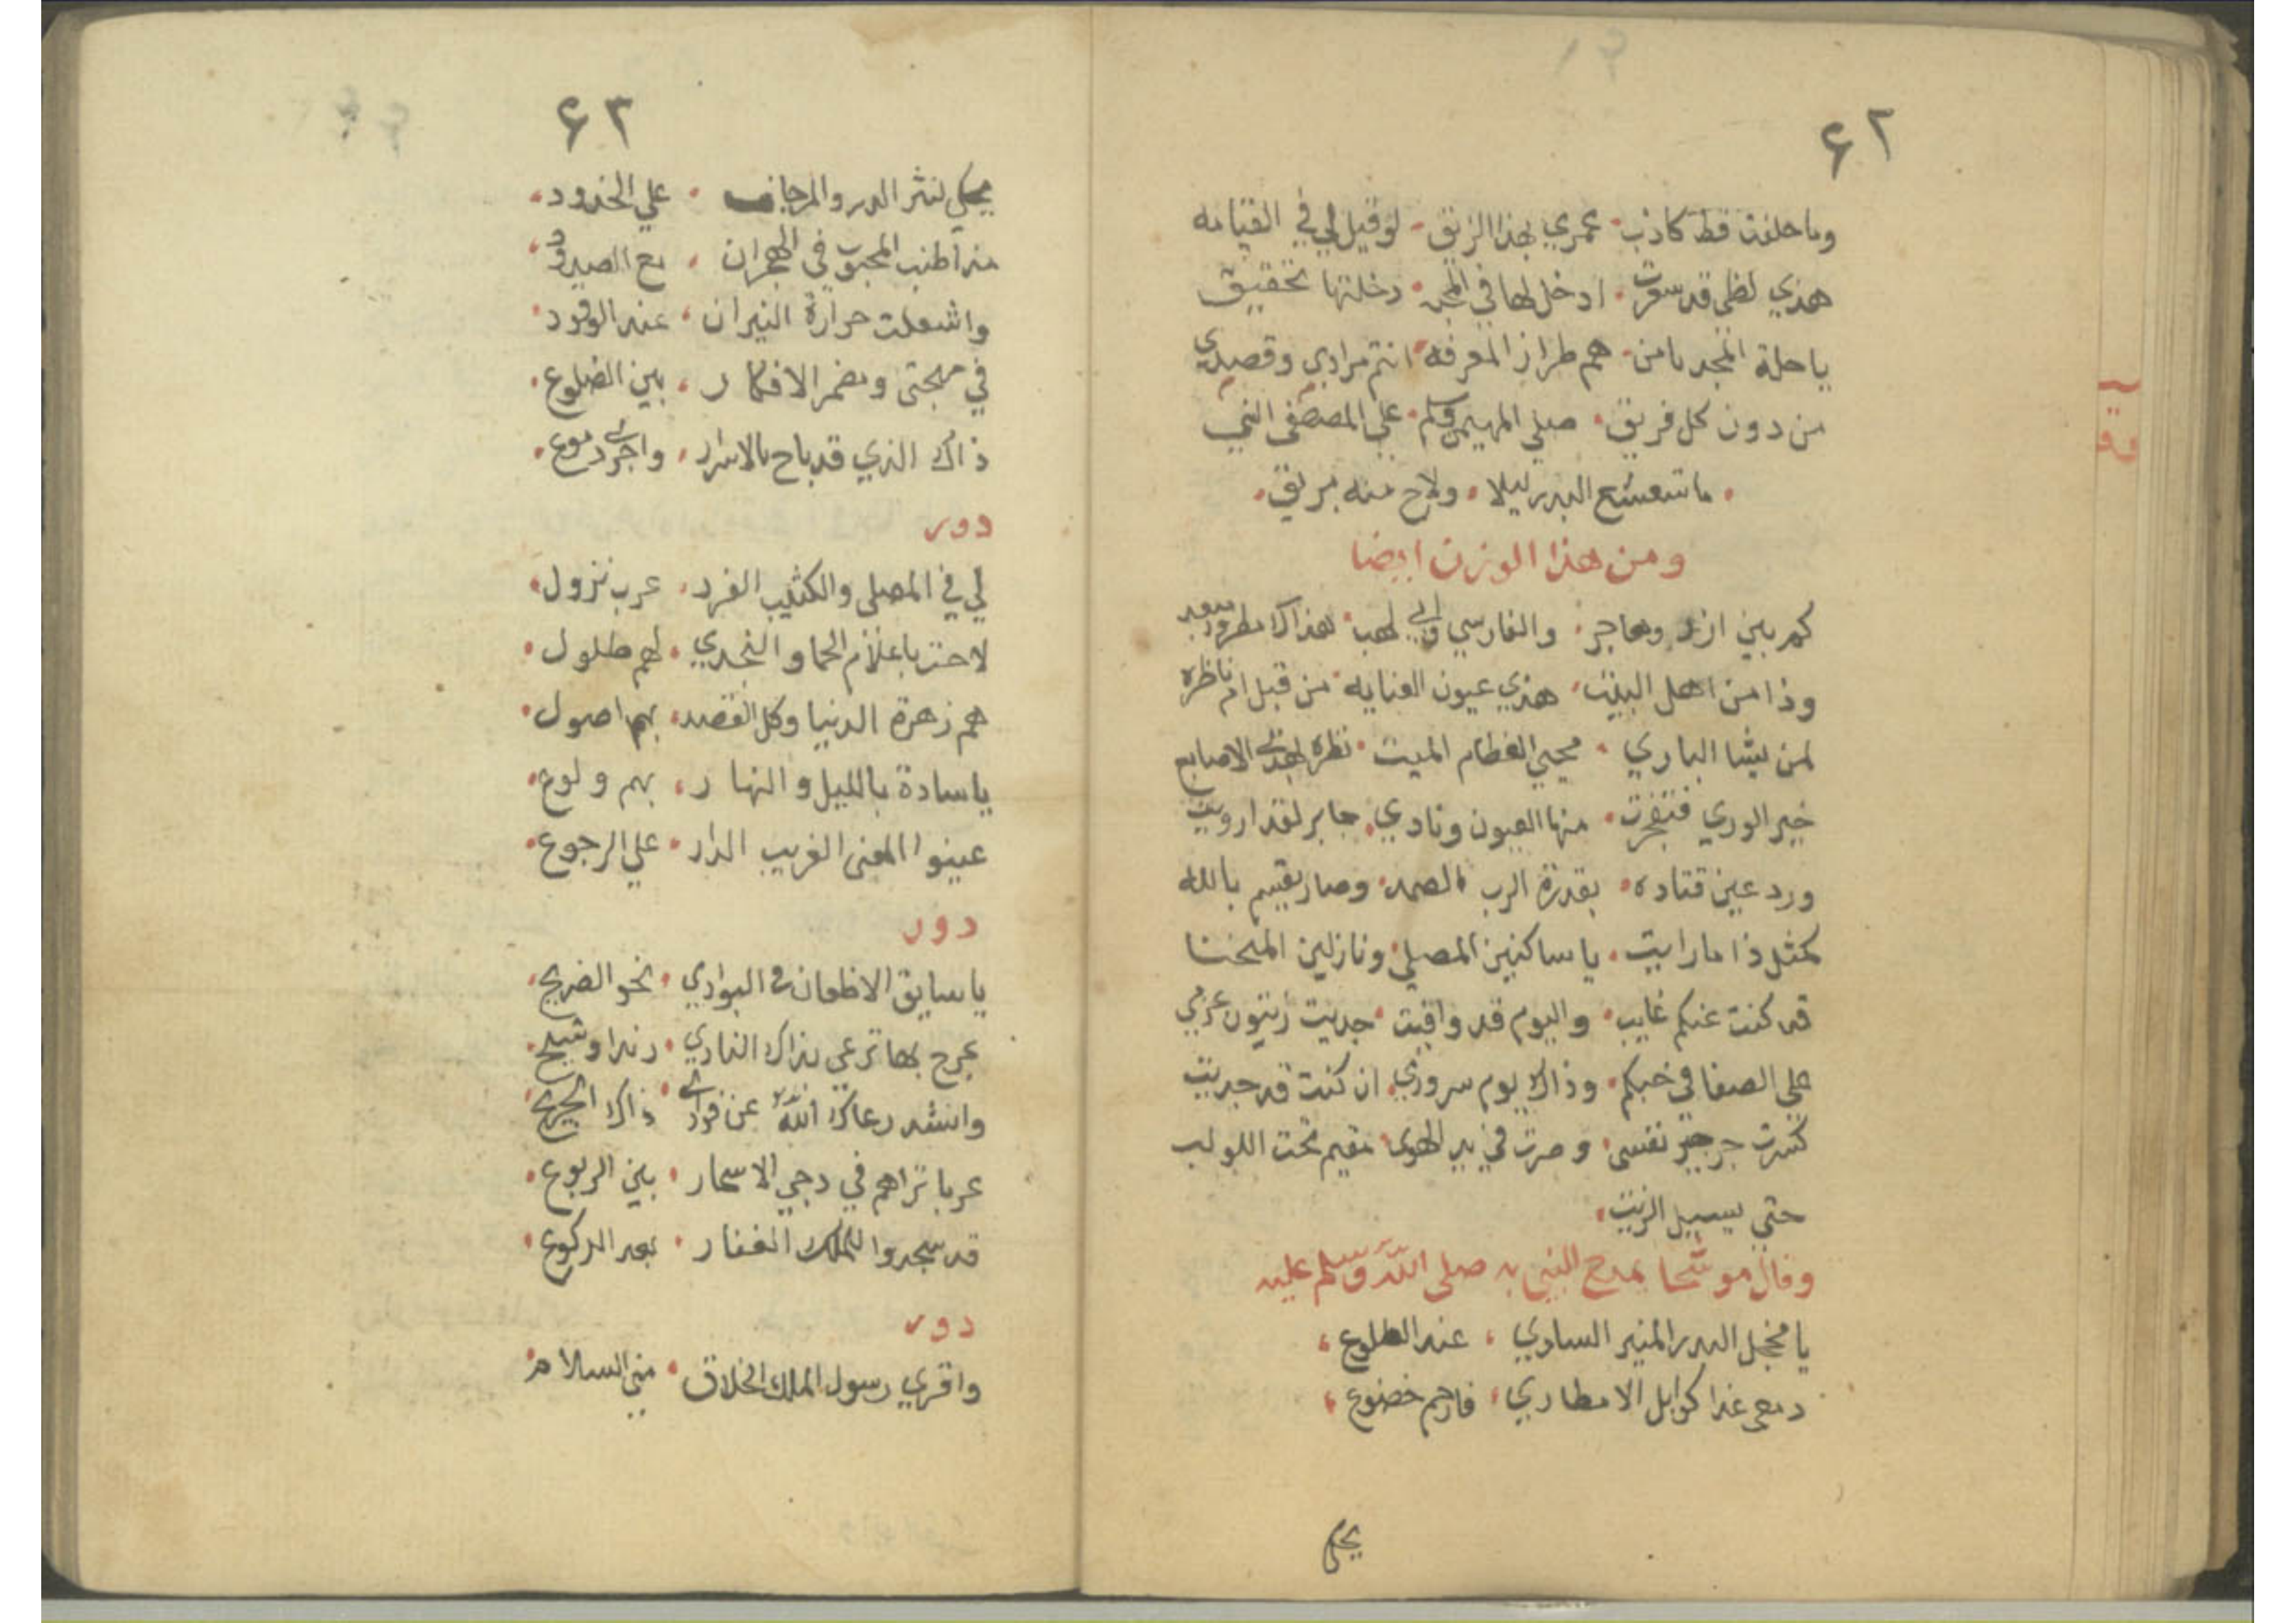 ٤٢
وما حلفت قط كاذب عمري بهذا الزيق لو قيل لي في القيامه
هذي لظى قد سعرت ادخل لها في دخلتها تحقيق
يا حلة المجد يا من هم طراز المعرفه انتم مرادي وقصدي
من دون كل فريق صلى المهيمن وسلم على المصطفى النبي
ما شعشع البدر ليلا ولاح منه بريق
ومن هذا الوزن ايضا
كم بين ازر وهاجر والفارسي وابي لهب هذاك مطرود بعيد
وذا من اهل البيت هذي عيون العنايه من قبل ام ناظره
لمن يشا الباري محيي العظام الميت نظره لهذي الاصابع
خير الوري فتفجرت منها العيون ونادي جابر لقد ارويت
ورد عين قتاده بقدرة الرب الصمد وصار يقسم بالله
كمثل ذا ما رايت يا ساكنين المصلي ونازلين المنحنا
قد كنت عنكم غايب واليوم قد وافيت جديت زيتون عزمي
على الصفا في حبكم وذاك يوم سروري ان كنت قد جديت
كسرت نفسي وصرت في بير الهوى مقيم تحت اللولب
حتي يسيل الزيت
وقال موشحا يمدح النبي به صلى الله وسلم عليه
يا مخجل البدر المنير الساري عند الطلوع
دمعي غدا كوابل الامطاري فارحم خضوع
يحكي
٤٣
يحكي لنثر الدر والمرجان على الخدود
منذ اطنب المحبوب في الهجران مع الصدود
واشعلت حرارة النيران عند الوقود
في مهجتى ومضمر الافكار بين الضلوع
ذاك الذي قد باح بالاسرار واجرى دموع
دور
لي في المصلى والكثيب الفرد عرب نزول
لاحت باعلام الحما والنجدي لهم طلول
هم زهرة الدنيا وكل القصد بهم اصول
يا سادة بالليل والنهار بهم ولوع
عينوا المعنى الغريب الدار على الرجوع
دور
يا سايق الاظعان في البوادي نحو الضريح
عرج بها ترعى بذاك النادي رندا وشيح
وانشد رعاك الله عن فوادي ذاك الجريح
عربا تراهم في دجي الاسحار بين الربوع
قد سجدوا للملك الغفار بعد الركوع
دور
واقري رسول الملك الخلاق مني السلام